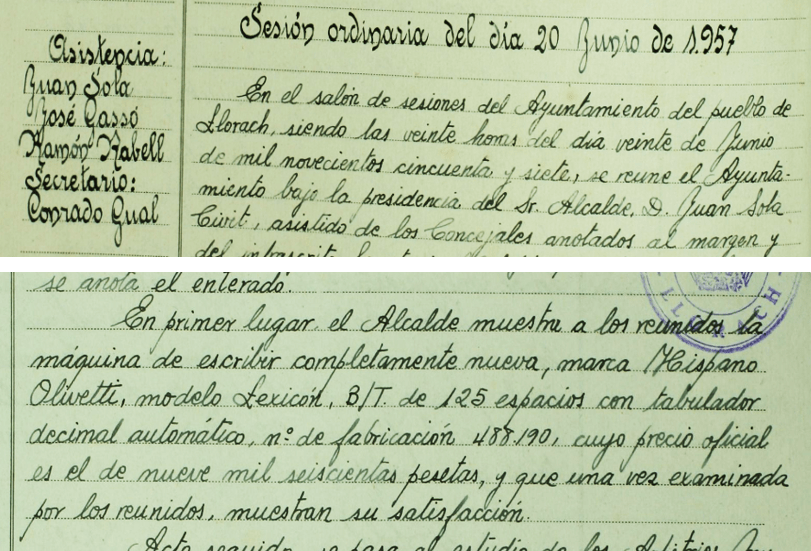 Sesión ordinaria del día 20 Junio de 1.957
Asistencia:
Juan Sola
José Gassó
Ramón Rabell
Secretario:
Conrado Gual
En el salón de sesiones del Ayuntamiento del pueblo de
Llorach, siendo las veinte horas del día veinte de Junio
de mil novecientos cincuenta y siete, se reune el Ayunta-
miento bajo la presidencia del Sr. Alcalde, D. Juan Sola
Civit, asistido de los Concejales anotados al margen y
del infrascrito
se anota el enterado.
LLORACH
En primer lugar el Alcalde muestra a los reunidos la
máquina de escribir completamente nueva, marca Hispano
Olivetti, modelo Lexicón, B/T. de 125 espacios con tabulador
decimal automático, nº de fabricación 488.190, cuyo precio oficial
es el de nueve mil seiscientas pesetas, y que una vez examinada
por los reunidos, muestran su satisfacción.
Acto seguido se pasa al estudio de los Arbitrios